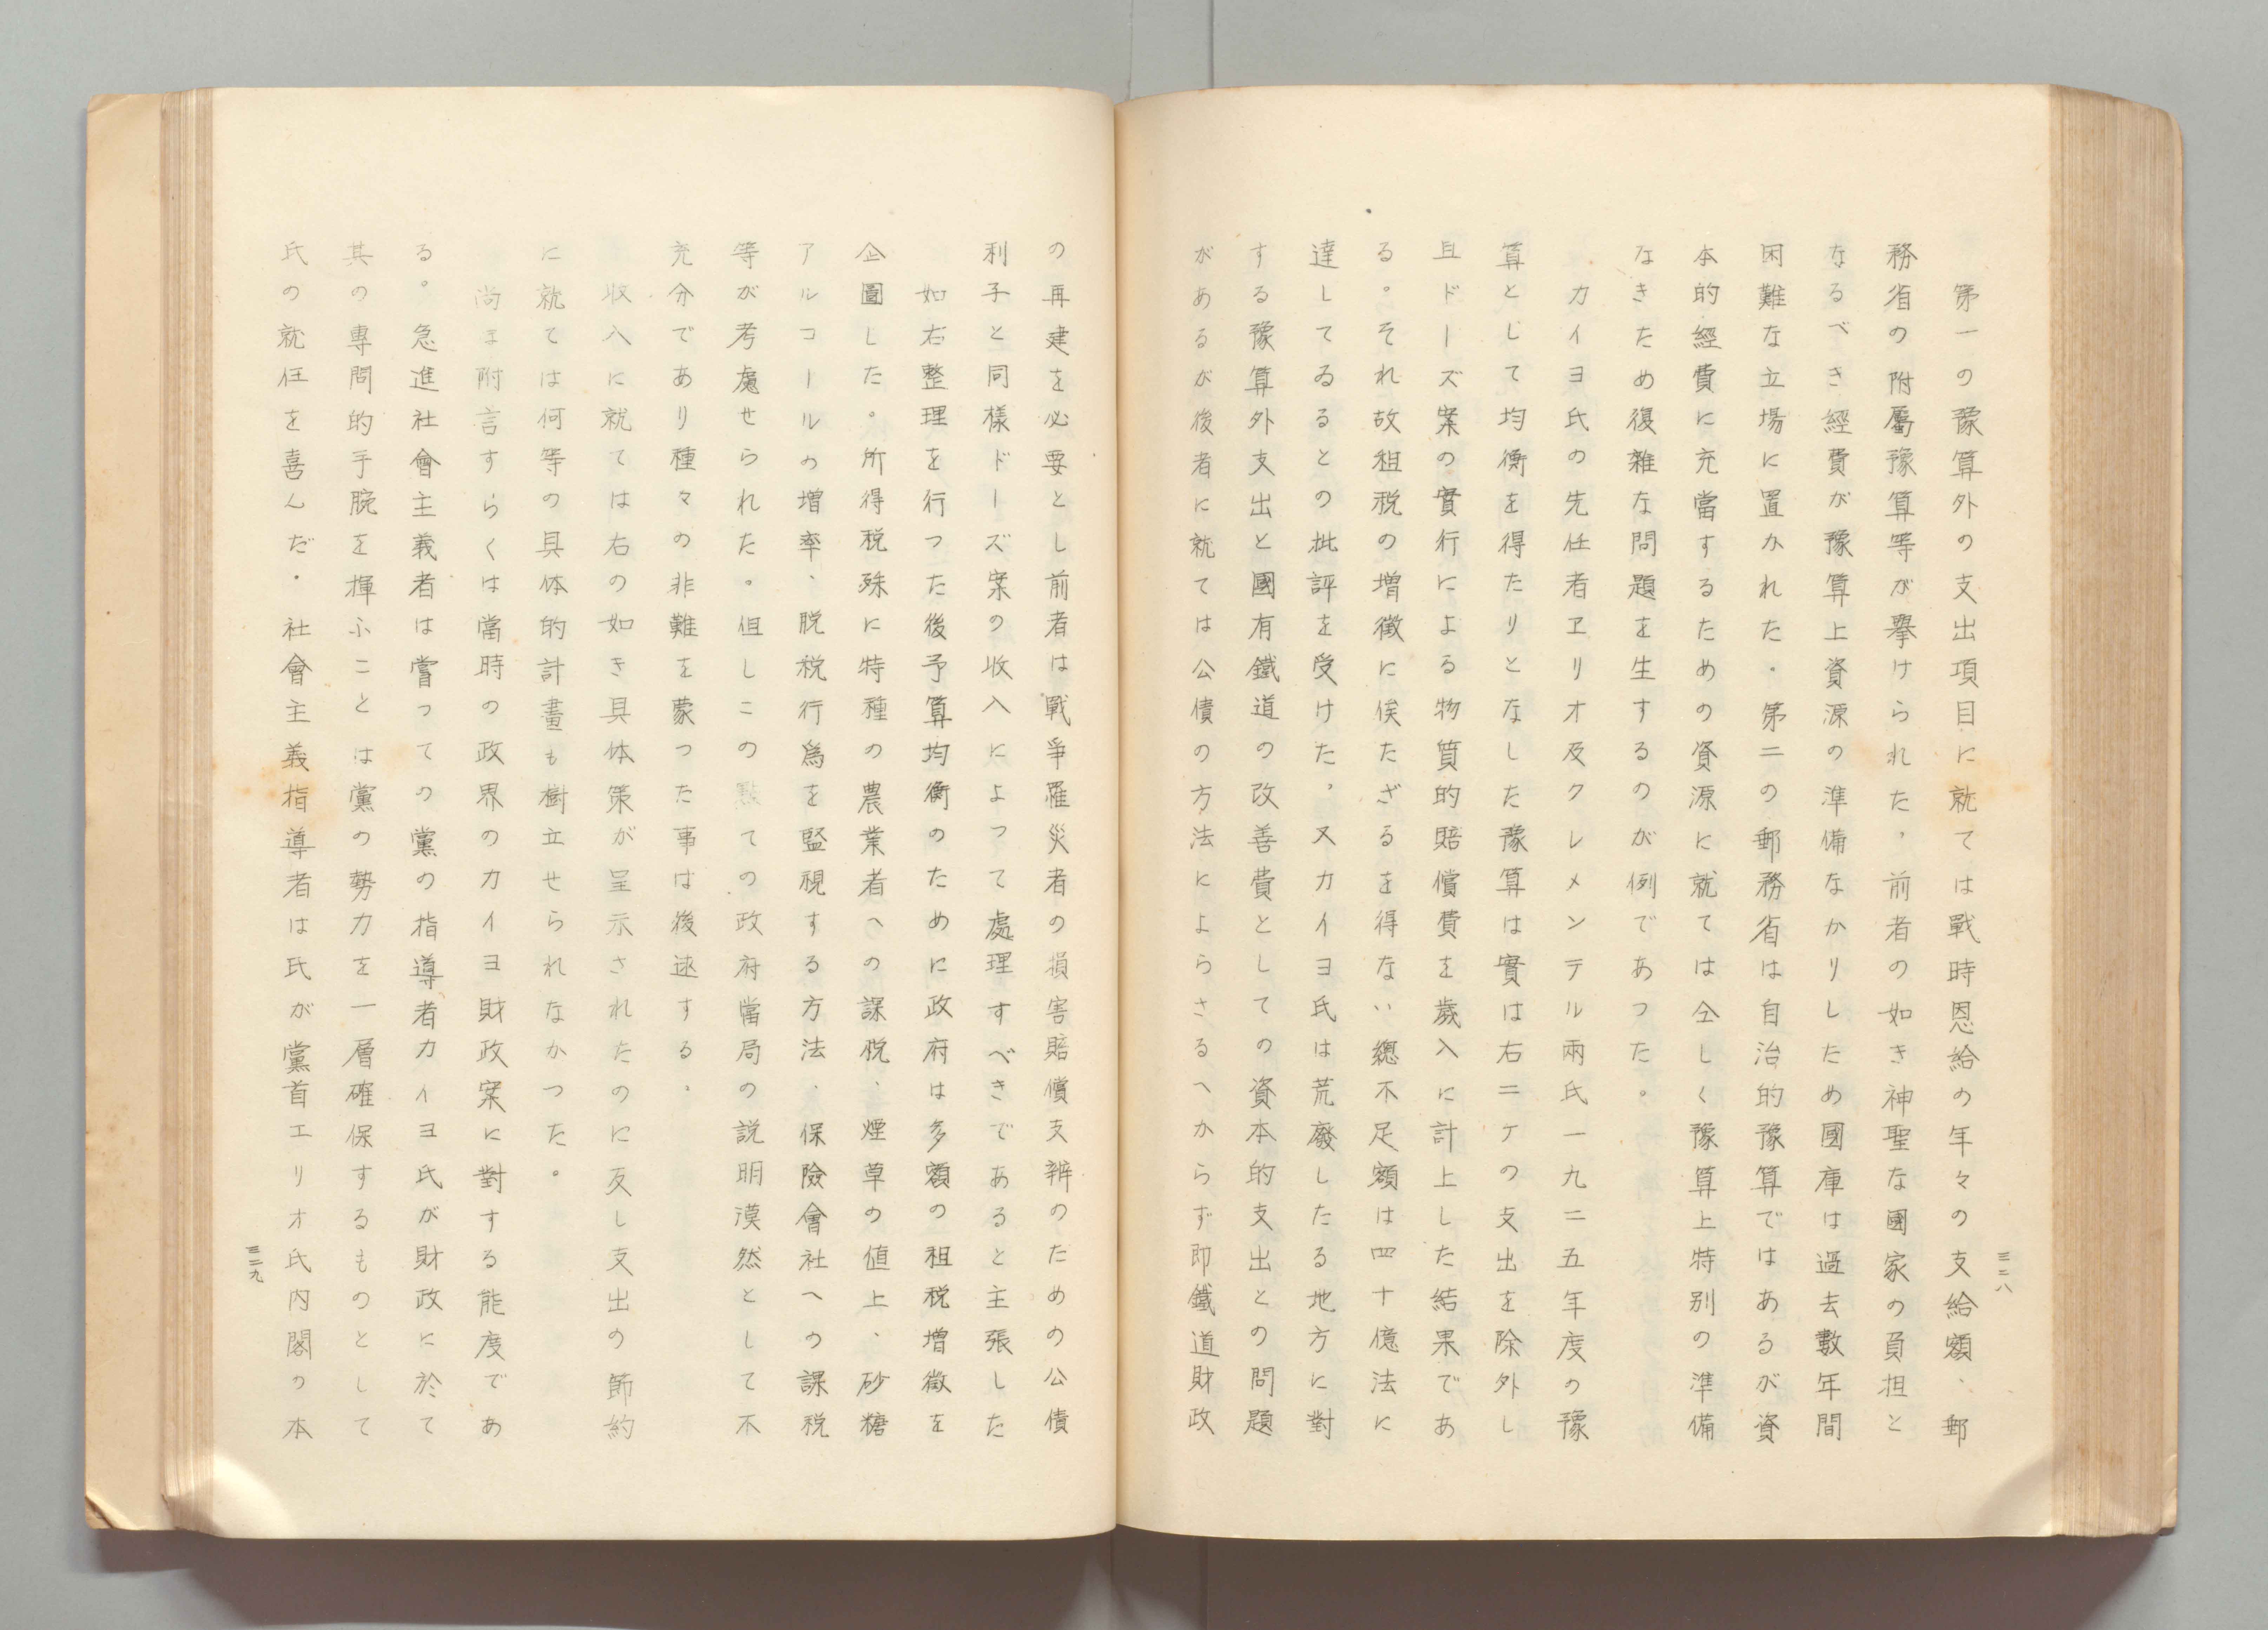 第一の豫算外の支出項目に就ては戰時恩給の年々の支給額、郵
務省の附屬豫算等が擧けられた，前者の如き神聖な國家の負担と
なるべき經費が豫算上資源の準備なかりしため國庫は過去數年間
困難な立場に置かれた．第二の郵務省は自治的豫算ではあるが資
本的經費に充當するための資源に就ては全しく豫算上特別の準備
なきため復雜な問題を生するのが例であつた。
カイヨ氏の先任者ヱリオ及クレメンテル兩氏一九二五年度の豫
算として均衡を得たりとなした豫算は實は右ニケの支出を除外し
且ドーズ案の實行による物質的賠償費を歲入に計上した結果であ
る。それ故租税の増徴に俟たざるを得ない總不足額は四十億法に
達してゐるとの批評を受けた，又カイヨ氏は荒廢したる地方に對
する豫算外支出と國有鐵道の改善費としての資本的支出との問題
があるが後者に就ては公債の方法によらさるへからず即鐵道財政
三二八
の再建を必要とし前者は戰爭罹災者の損害賠償支辨のための公債
利子と同樣ドーズ案の收入によつて處理すべきであると主張した
如右整理を行つた後予算均衡のために政府は多額の租税增徴を
企圖した。所得税殊に特種の農業者への課税、煙草の値上、砂糖
アルコールの増率、脱税行爲を監視する方法、保險會社への課税
等が考慮せられた。但しこの點ての政府當局の説明漠然として不
充分であり種々の非難を蒙つた事は後述する．
收入に就ては右の如き具体策が呈示されたのに反し支出の節約
に就ては何等の具体的計畫も樹立せられなかつた。
尚ほ附言すらくは當時の政界のカイヨ財政案に對する能度であ
る。急進社會主義者は嘗つての黨の指導者カイヨ氏が財政に於て
其の專問的手腕を揮ふことは黨の勢力を一層確保するものとして
氏の就任を喜んだ．社會主義指導者は氏が黨首エリオ氏内閣の本
三二九